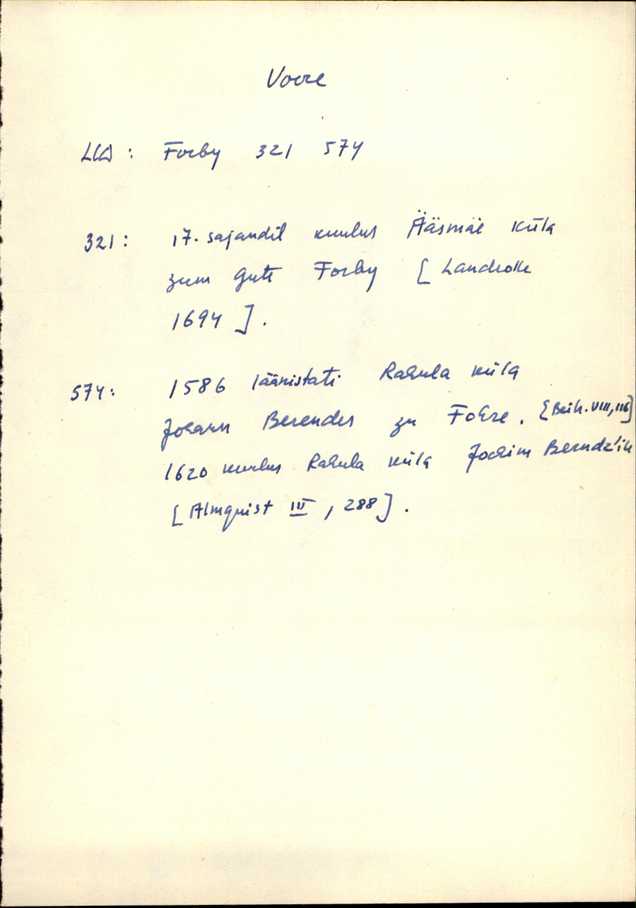 Voore
LCD: Forby 321 574
321: 17. sajandil kuulus Ääsmäe küla
zum Gute Forby [Landrolle
1694].
574: 1586 läänistati Rahula küla
Johann Berendes zu Fohre. [Beih. VIII, 116]
1620 kuulus Rahula küla Jochim Berndz'ile
[Almquist III, 288].